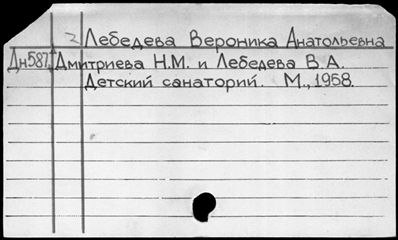 2 Лебедева Вероника Анатольевна
Дн587. Дмитриева Н.М. и Лебедева В.А.
Детский санаторий. М., 1958.